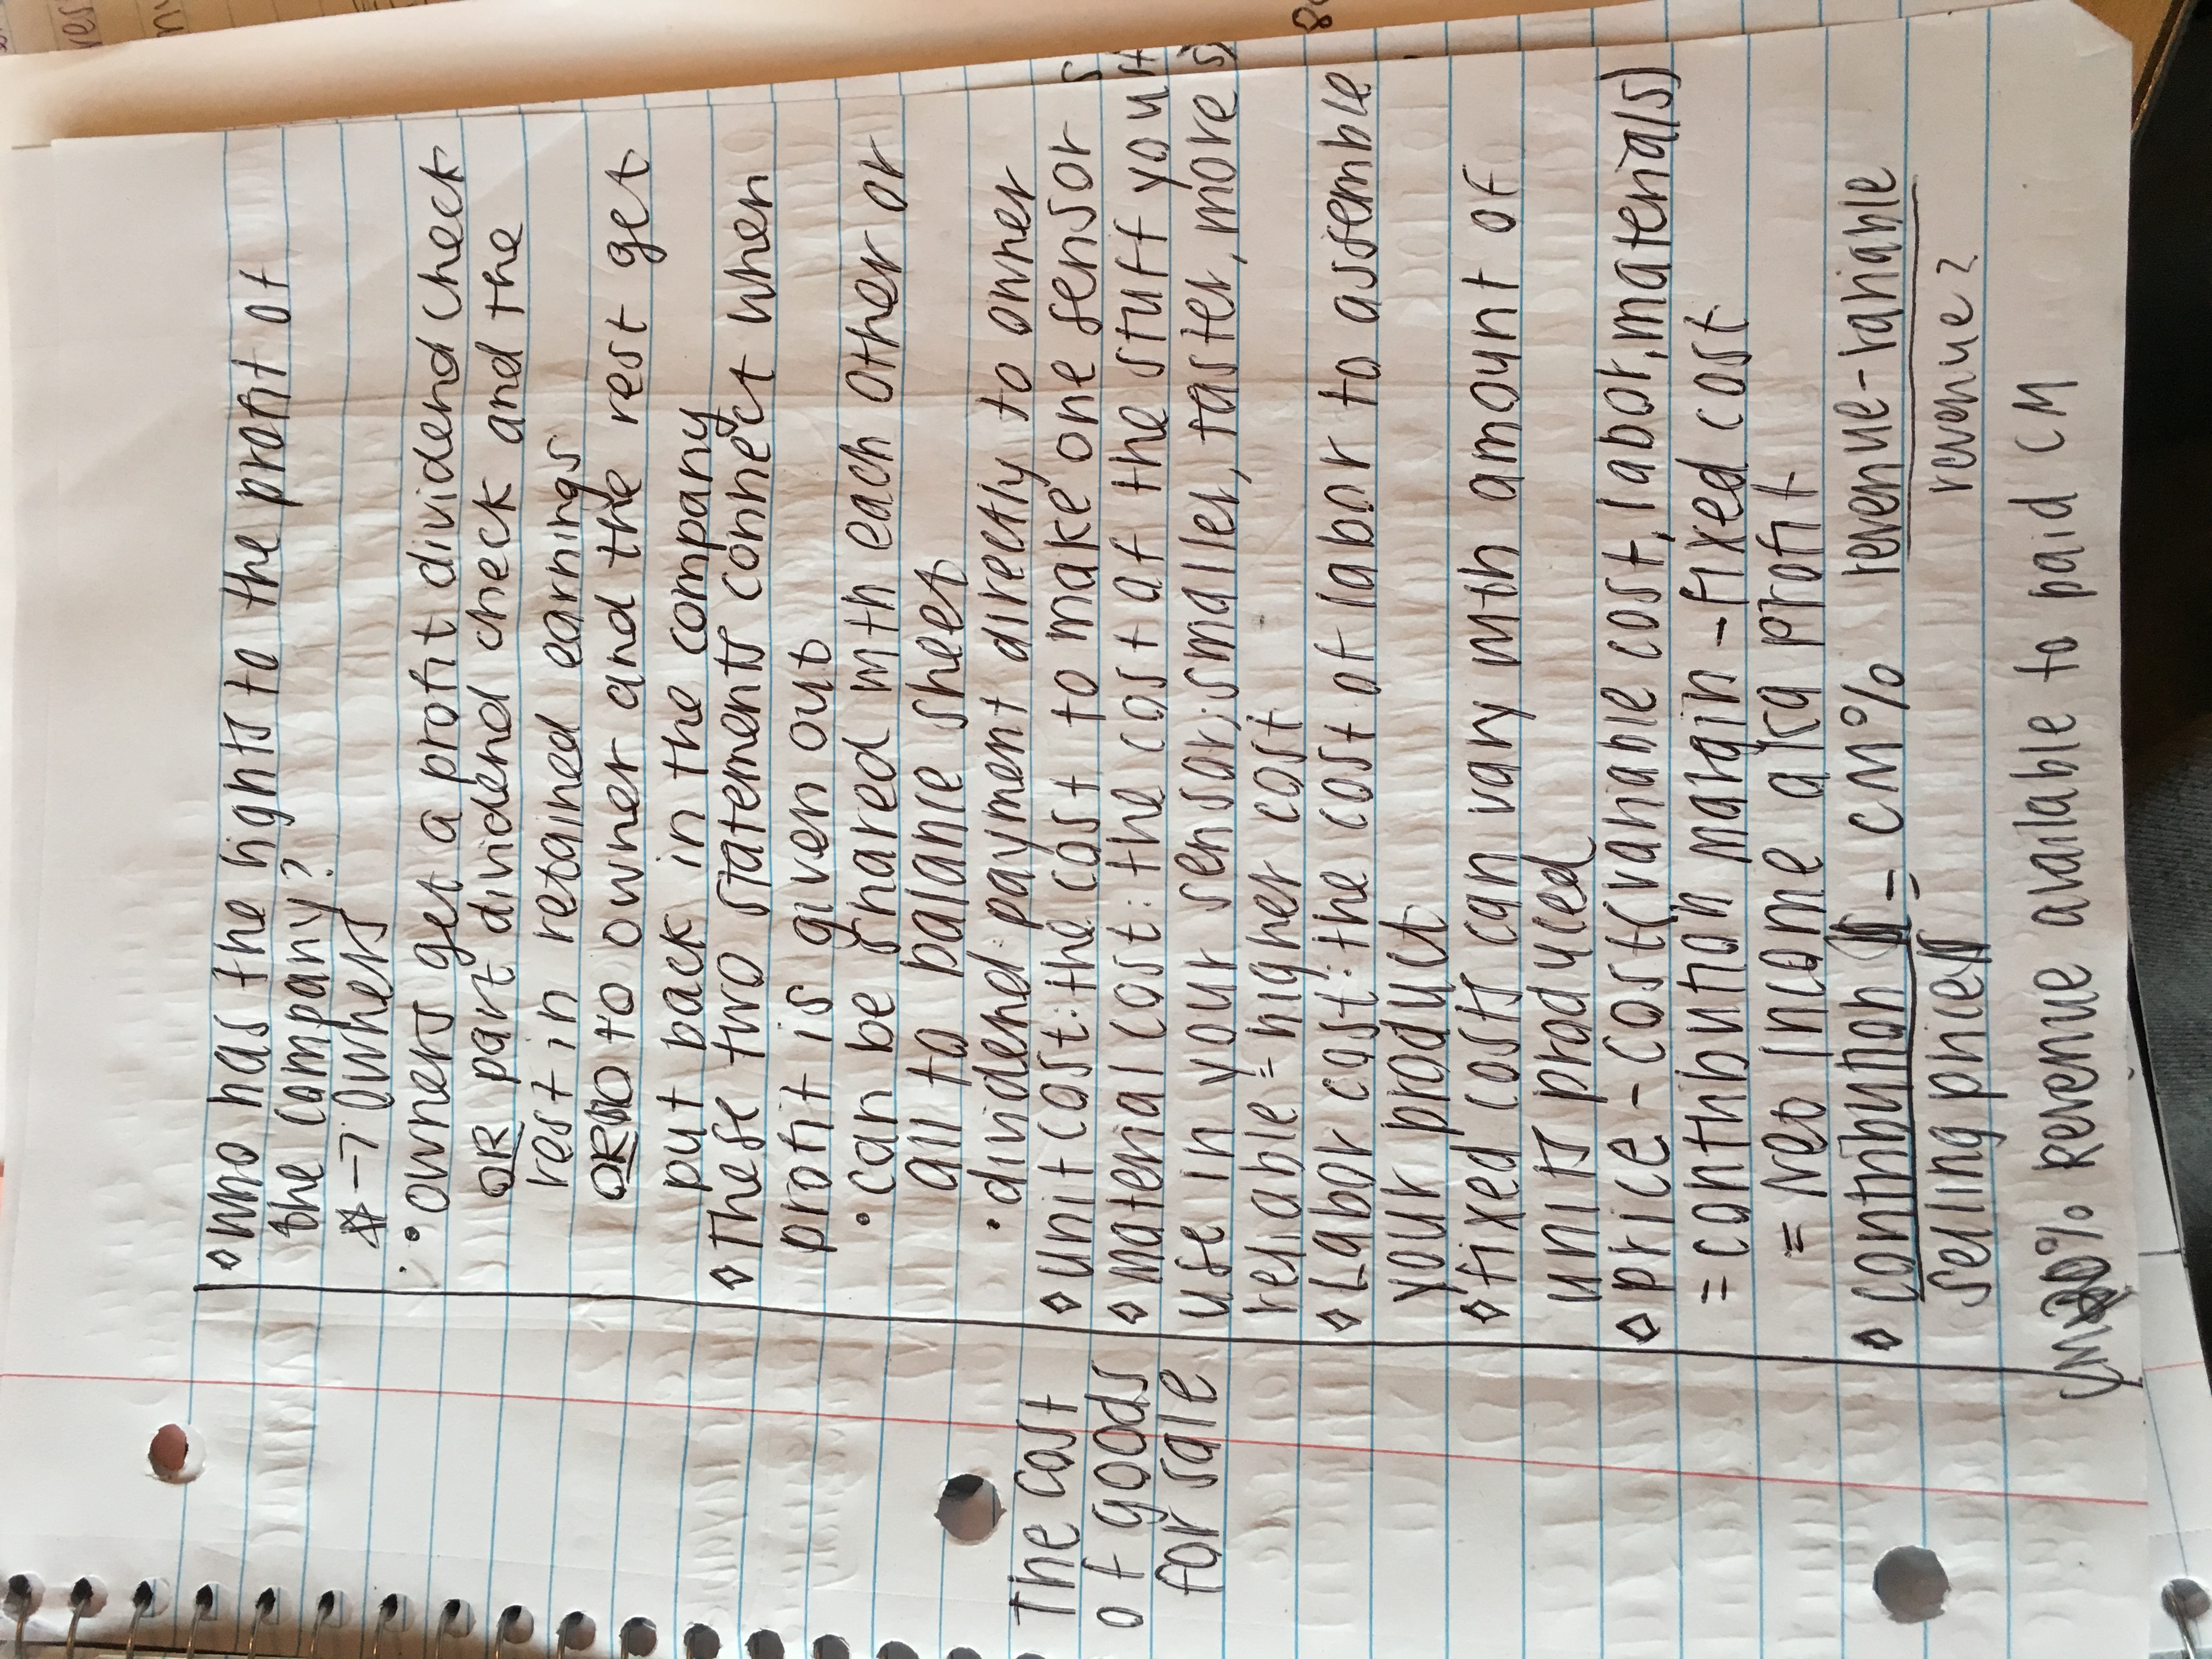 ◊ who has the rights to the profit of
the company?
* → owners
• owners get a profit dividend check
OR part dividend check and the
rest in retained earnings
OR to owner and the rest get
put back in the company
◊ These two statements connect when
profit is given out
• can be shared with each other or
all to balance sheet
• dividend: payment directly to owner
The cost
of goods
for sale
◊ unit cost: the cost to make one sensor
◊ material cost: the cost of the stuff you
use in your sensor; smaller, faster, more
reliable = higher cost
◊ Labor cost: the cost of labor to assemble
your product
◊ fixed costs can vary with amount of
units produced
◊ price - cost (variable cost, labor, materials)
= contribution margin - fixed cost
= Net income aka profit
◊ contribution = CM% revenue-variable
selling price revenue
% Revenue available to paid CM